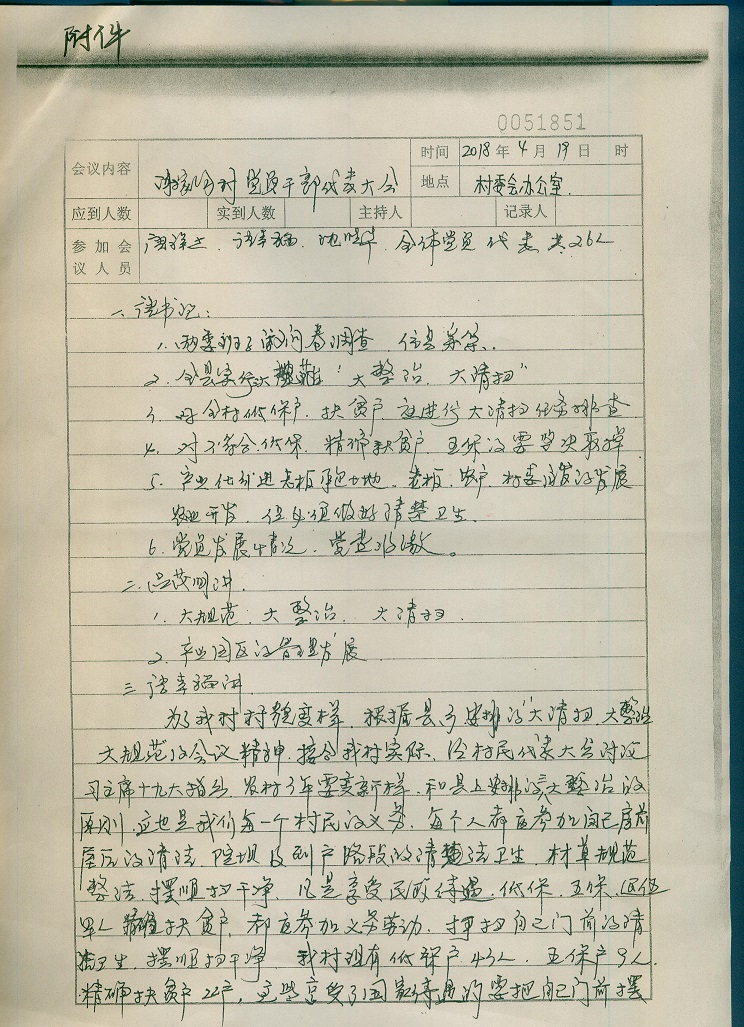 附件
0051851
会议内容 村党员干部代表大会 时间 2018年4月19日 时
地点 村委会办公室
应到人数 实到人数 主持人 记录人
参加会议人员 全体党员 代表 共26人
一、书记:
1. 两委班子做问卷调查
2. 全县实行大规范 "大整治、大清扫"
3. 对全村低保户、扶贫户 进行大清扫任务排查
4. 对不符合低保、精确扶贫户、五保的要坚决取掉
5. 产业化引进老板承包土地、老板、农户、村委 的发展
农业开发、但必须做好清楚卫生.
6. 党员发展情况、党费收激。
二、明讲.
1. 大规范、大整治、大清扫.
2. 产业园区的管理发展
三、讲.
为了我村村貌变样、根据县 安排的"大清扫、大整治
大规范的会议精神、接合我村实际、经村民代表大会
习主席十九大指出、农村 年要变新样、和县上安排 大整治的
原则、应也是我们每一个村民的义务、每个人都应参加自己房前
屋后的清洁、院坝及到户路段的清 洁卫生、材草规范
整洁、摆顺扫干净、凡是享受民政待遇、低保、五保、
军人 扶贫户、都应参加义务劳动、打扫自己门前的清
洁卫生、摆顺扫干净 我村现有低保户43人、五保户9人、
精确扶贫户22户、这些享受了国家待遇的要把自己门前摆